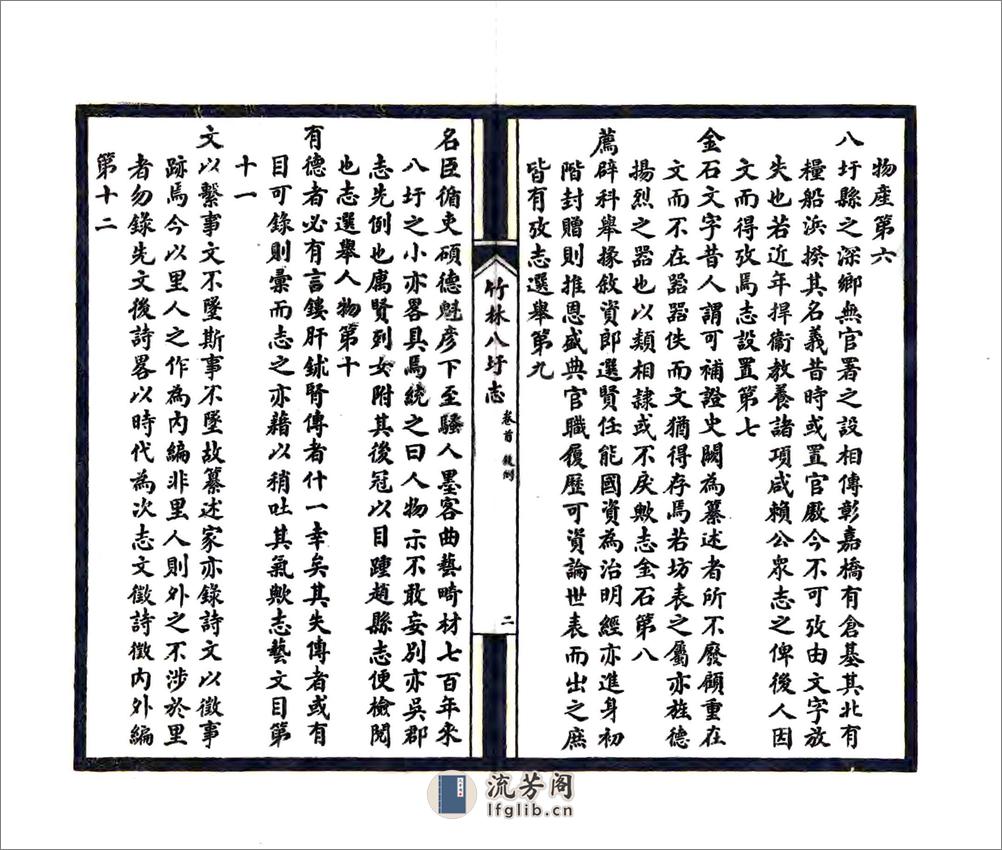 物產第六
八圩縣之深鄉無官署之設相傳彰嘉橋有倉基其北有
糧船浜揆其名義昔時或置官廠今不可攷由文字放
失也若近年捍衞教養諸項咸賴公衆志之俾後人因
文而得攷焉志設置第七
金石文字昔人謂可補證史闕為纂述者所不廢顧重在
文而不在器器佚而文猶得存焉若坊表之屬亦旌德
揚烈之器也以類相隸或不戾歟志金石第八
薦辟科舉掾敘資郎選賢任能國資為治明經亦進身初
階封贈則推恩盛典官職履歷可資論世表而出之庶
皆有攷志選舉第九
竹林八圩志
卷首 敘例
二
名臣循吏碩德魁彦下至騷人墨客曲藝畸材七百年來
八圩之小亦畧具焉統之曰人物示不敢妄別亦吳郡
志先例也寓賢列女附其後冠以目踵趙縣志便檢閱
也志選舉人物第十
有德者必有言鏤肝鉥腎傳者什一幸矣其失傳者或有
目可錄則彙而志之亦藉以稍吐其氣歟志藝文目第
十一
文以繫事文不墜斯事不墜故纂述家亦錄詩文以徵事
跡焉今以里人之作為內編非里人則外之不涉於里
者勿錄先文後詩畧以時代為次志文徵詩徵內外編
第十二
流芳阁
lfglib.cn